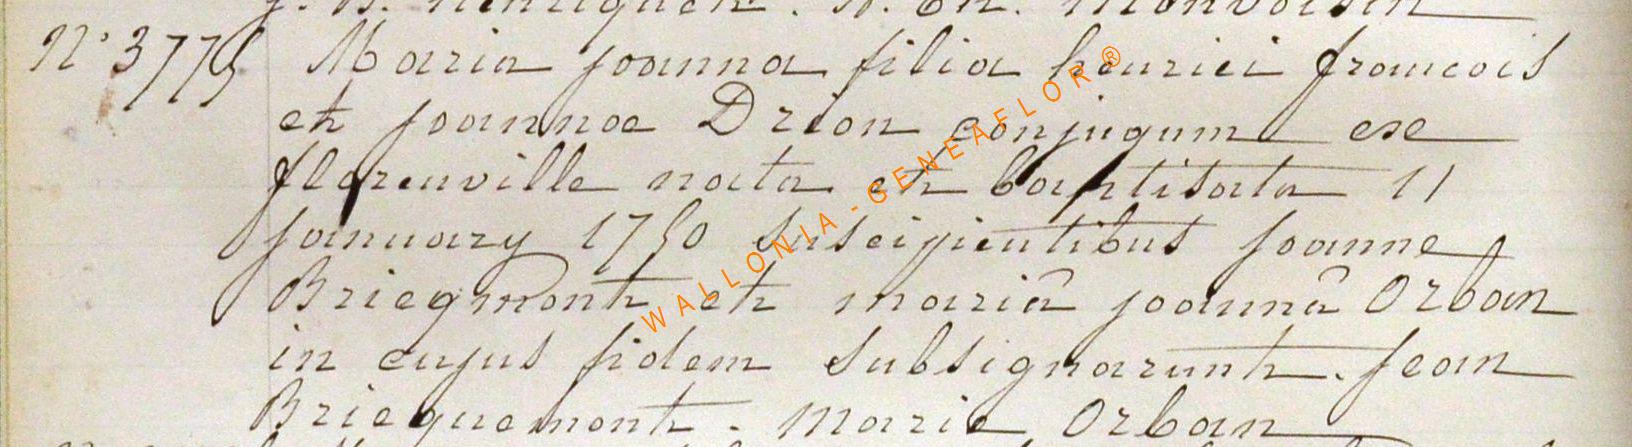 J. B. Henriquet. N. En. Monvoisin
N° 3775 Maria Joanna filia henrici francois
et Joannae Drion conjugum ex
florenville nata et baptisata 11
January 1750 suscipientibus Joanne
Bricqmont et mariâ Joannâ Orban
in cujus fidem subsignarunt. Jean
Bricquemont. Marie Orban
WALLONIA-GENEAFLOR®